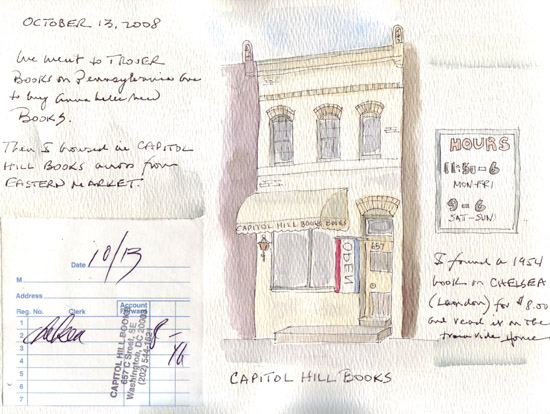 OCTOBER 13, 2008
We went to TROVER
BOOKS on Pennsylvania Ave
to buy
BOOKS.
Then I browsed in CAPITOL
HILL BOOKS across from
EASTERN MARKET.
CAPITOL HILL BOOKS BOOKS
OPEN
657
HOURS
11:30-6
MON-FRI
9-6
SAT-SUN
I found a 1954
book on CHELSEA
(London) for $8.00
and read it on the
train ride home
Date 10/13
M
Address
Reg. No. Clerk Account Forward
1
2 Chelsea 8-
3
4
5
6
7
CAPITOL HILL BOOKS
657 C Street, SE
Washington, DC 20003
(202) 544-1621
CAPITOL HILL BOOKS